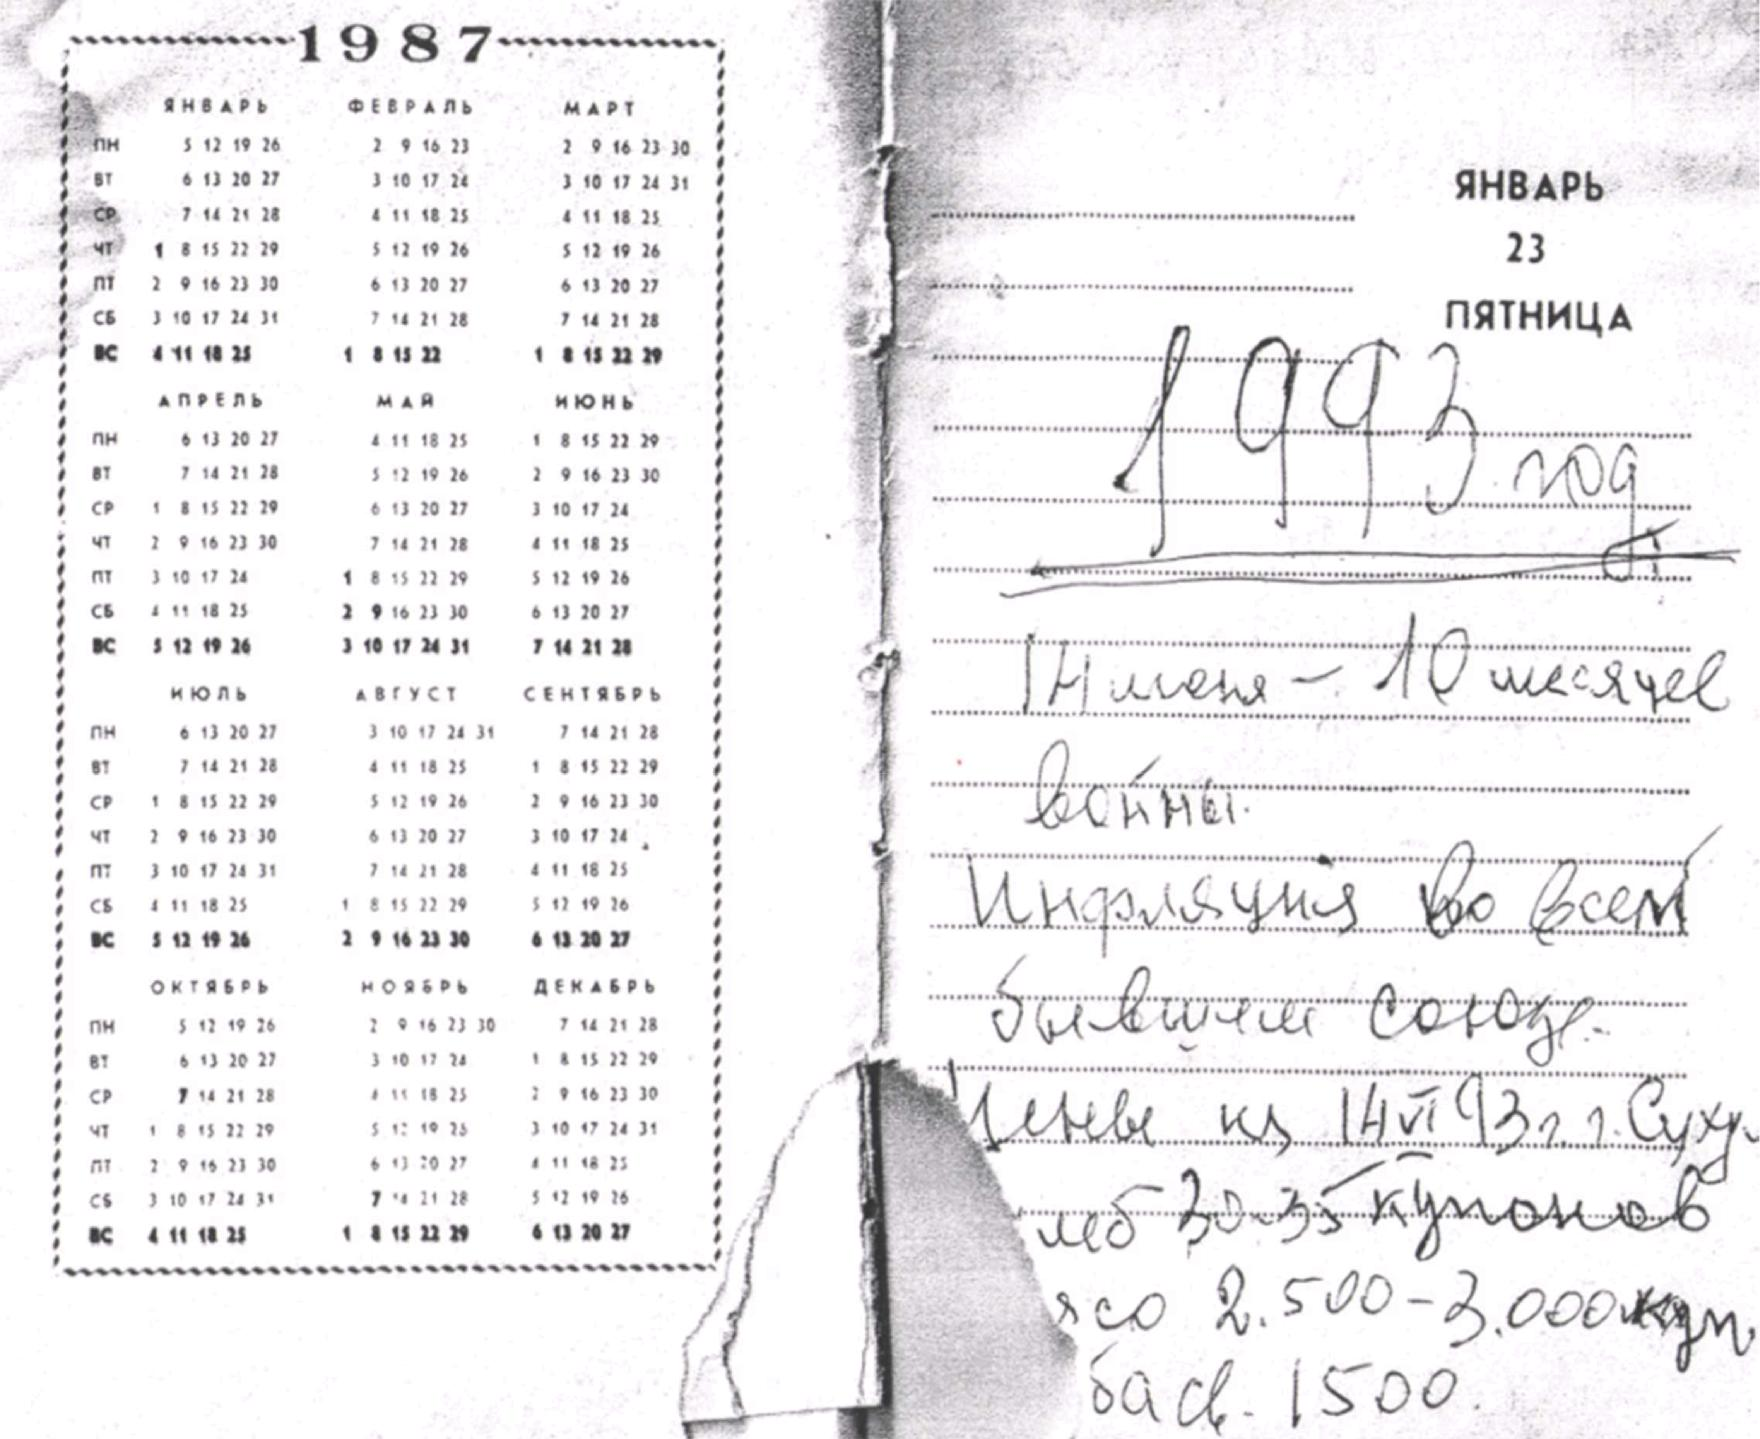 1987
ЯНВАРЬ ФЕВРАЛЬ МАРТ
ПН 5 12 19 26 2 9 16 23 2 9 16 23 30
ВТ 6 13 20 27 3 10 17 24 3 10 17 24 31
СР 7 14 21 28 4 11 18 25 4 11 18 25
ЧТ 1 8 15 22 29 5 12 19 26 5 12 19 26
ПТ 2 9 16 23 30 6 13 20 27 6 13 20 27
СБ 3 10 17 24 31 7 14 21 28 7 14 21 28
ВС 4 11 18 25 1 8 15 22 1 8 15 22 29
АПРЕЛЬ МАЙ ИЮНЬ
ПН 6 13 20 27 4 11 18 25 1 8 15 22 29
ВТ 7 14 21 28 5 12 19 26 2 9 16 23 30
СР 1 8 15 22 29 6 13 20 27 3 10 17 24
ЧТ 2 9 16 23 30 7 14 21 28 4 11 18 25
ПТ 3 10 17 24 1 8 15 22 29 5 12 19 26
СБ 4 11 18 25 2 9 16 23 30 6 13 20 27
ВС 5 12 19 26 3 10 17 24 31 7 14 21 28
ИЮЛЬ АВГУСТ СЕНТЯБРЬ
ПН 6 13 20 27 3 10 17 24 31 7 14 21 28
ВТ 7 14 21 28 4 11 18 25 1 8 15 22 29
СР 1 8 15 22 29 5 12 19 26 2 9 16 23 30
ЧТ 2 9 16 23 30 6 13 20 27 3 10 17 24
ПТ 3 10 17 24 31 7 14 21 28 4 11 18 25
СБ 4 11 18 25 1 8 15 22 29 5 12 19 26
ВС 5 12 19 26 2 9 16 23 30 6 13 20 27
ОКТЯБРЬ НОЯБРЬ ДЕКАБРЬ
ПН 5 12 19 26 2 9 16 23 30 7 14 21 28
ВТ 6 13 20 27 3 10 17 24 1 8 15 22 29
СР 7 14 21 28 4 11 18 25 2 9 16 23 30
ЧТ 1 8 15 22 29 5 12 19 26 3 10 17 24 31
ПТ 2 9 16 23 30 6 13 20 27 4 11 18 25
СБ 3 10 17 24 31 7 14 21 28 5 12 19 26
ВС 4 11 18 25 1 8 15 22 29 6 13 20 27
ЯНВАРЬ
23
ПЯТНИЦА
1993 год
14 июня – 10 месяцев
войны.
Инфляция во всем
бывшем союзе.
Цены на 14 VI 93 г. г. Сух.
леб 30-35 купонов
ясо 2.500-3.000 куп
ба св. 1500.